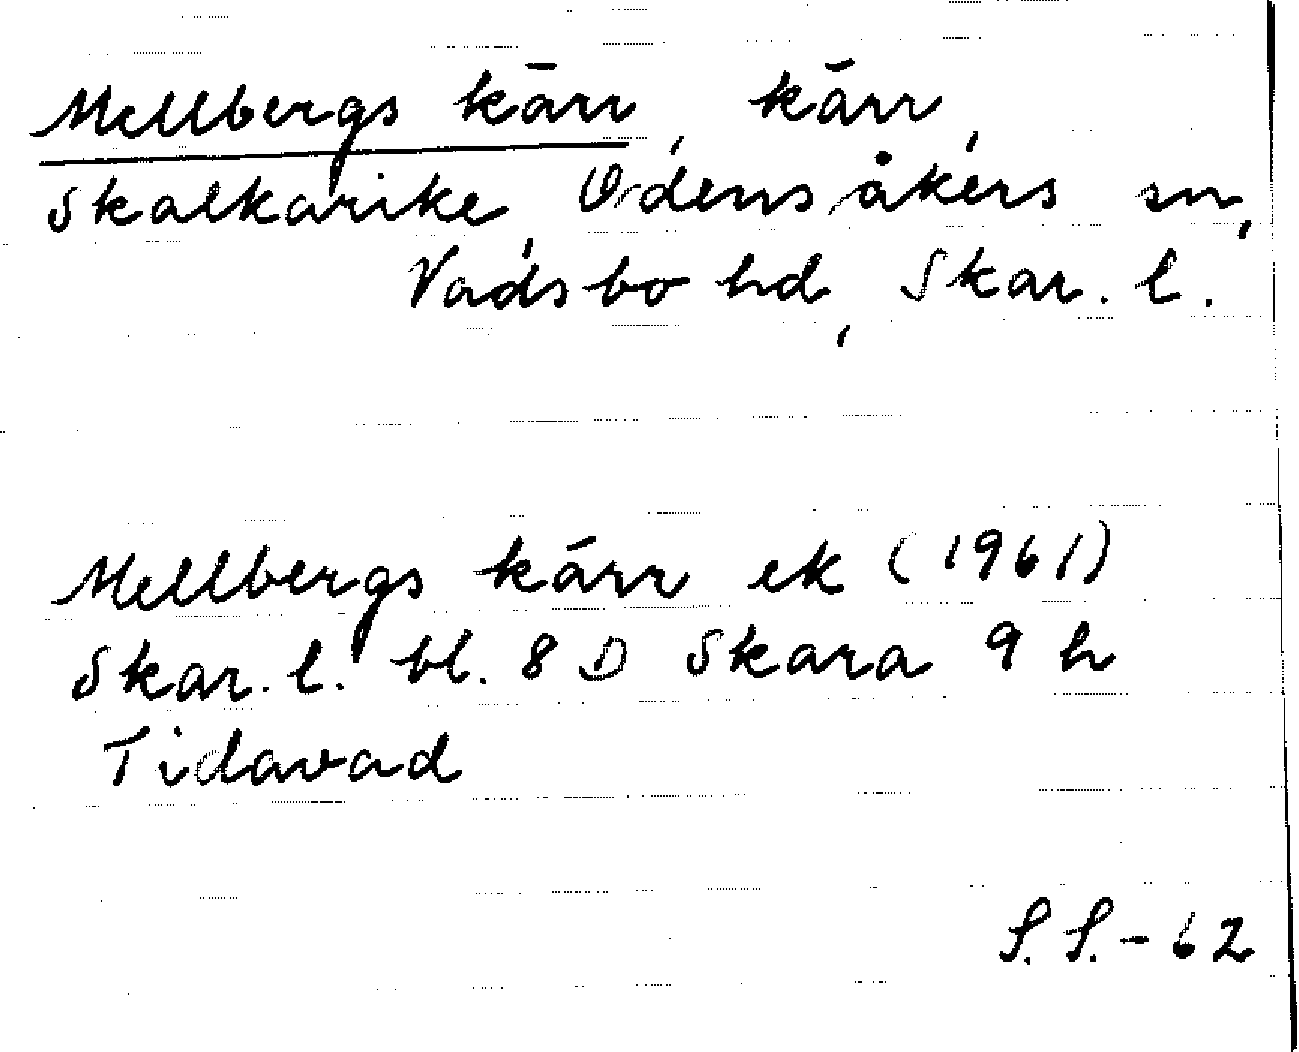 Mellbergs kärr, kärr,
Skalkarike, Odensåkers sn,
Vadsbo hd, Skar. l.
Mellbergs kärr ek (1961)
Skar. l. bl. 8 D Skara 9 h
Tidavad
S. S. - 62